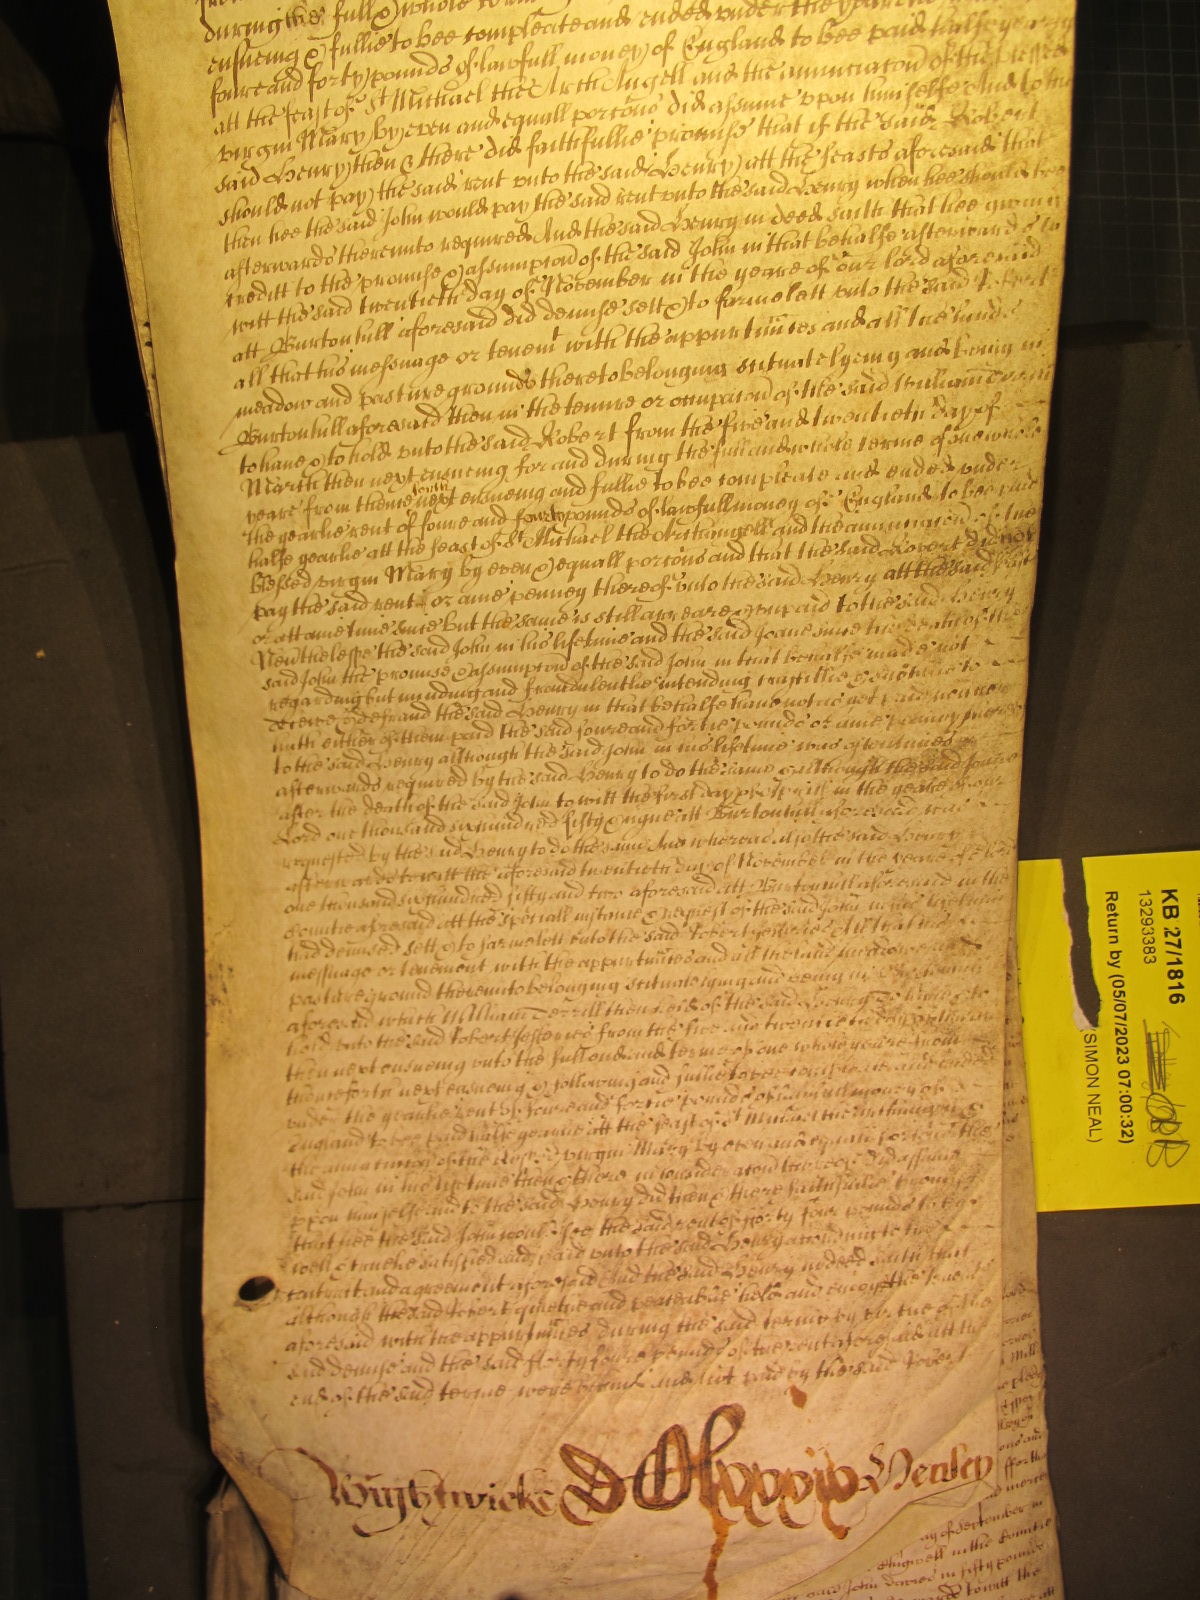 during the full & whole terme
ensueing & fullie to bee compleate and ended under the yearlie
foure and forty pounds of lawfull money of England to bee paid halfe yearly
att the feast of St Michael the Arch Angell and the annunciacon of the blessed
virgin Mary by even and equall porcons did assume upon himselfe And to the
said Henry then & there did faithfullie promise that if the said Robert
should not pay the said rent unto the said Henry att the feasts aforesaid that
then hee the said John would pay the said rent unto the said Henry when hee should bee
afterwards thereunto required And the said Henry in deed saith that hee giveing
creditt to the promise & assumpcon of the said John in that behalfe afterwards to
witt the said twentieth day of November in the yeare of our lord aforesaid
att Burtonhull aforesaid did demise sett & to farme lett unto the said Robert
all that his messuage or tenemt with the appurtences and all the lands
meadow and pasture grounds thereto belonging scituate lyeing and being in
Burtonhull aforesaid then in the tenure or occupacon of the said William
to have & to hold unto the said Robert from the five and twentieth day of
March then next ensueing for and during the full and whole terme of one whole
yeare from thence next ensueing and fullie to bee compleate and ended under
the yearlie rent of foure and forty pounds of lawfull money of England to bee paid
halfe yearlie att the feast of St Michael the Archangell and the annunciacon of the
blessed virgin Mary by even & equall porcons and that the said Robert did not
pay the said rent or anie penney thereof unto the said Henry att the said feast
or att anie time since but the same is still arreare & unpaid to the said Henry
Neverthelesse the said John in his life time and the said Joane since the death of the
said John the promise & assumpcon of the said John in that behalfe made not
regarding but minding and fraudulentlie intending craftillie & subtillie to
deceive & defraud the said Henry in that behalfe have not nor yet paid nor hath
either of them paid the said foure and fortie pounds or anie penney thereof
to the said Henry although the said John in his life time was often times
afterwards required by the said Henry to do the same & although the said Joane
after the death of the said John to witt the first day of Aprill in the yeare of our
Lord one thousand six hundred fifty & nyne att Burtonhull aforesaid was
requested by the said Henry to do the same And whereas also the said Henry
afterwards to witt the aforesaid twentieth day of November in the yeare of our Lord
one thousand six hundred fifty and two aforesaid att Burtonhull aforesaid in the
countie aforesaid att the speciall instance & request of the said John in his life time
had demised sett & to farme lett unto the said Robert Jefferies All that his
messuage or tenement with the appurtences and all the land meadow and
pasture ground thereunto belonging scituate lying and being in Burtonhull
aforesaid which William then held of the said Henry To have & to
hold unto the said Robert Jefferies from the five and twentieth day of March
then next ensueing unto the full end and terme of one whole yeare from
thenceforth next ensueing & following and fullie to bee compleate and ended
under the yearlie rent of foure and fortie pounds of lawfull money of
England to bee paid halfe yearlie att the feast of St Michael the Archangell &
the annunciacon of the blessed virgin Mary by even and equall porcons the
said John in his life time then & there in consideracon thereof did assume
upon himselfe and to the said Henry did then & there faithfullie promise
that hee the said John would see the said rent of forty four pounds to bee
well & trulie satisfied and paid unto the said Henry according to the
contract and agreement aforesaid And the said Henry in deed saith that
although the said Robert quietlie and peaceablie held and enjoyed the tenemt
aforesaid with the appurtences during the said terme by virtue of the
said demise and the said forty foure pounds of the rent aforesaid att the
end of the said terme were behind and not paid by the said Robert
Wightwicke D Clxxxix Henley
KB 27/1816
13293383
Return by (05/07/2023 07:00:32)
(SIMON NEAL)
ay of September in
Chigwell in the Countie
said John in fifty pounds
to witt the